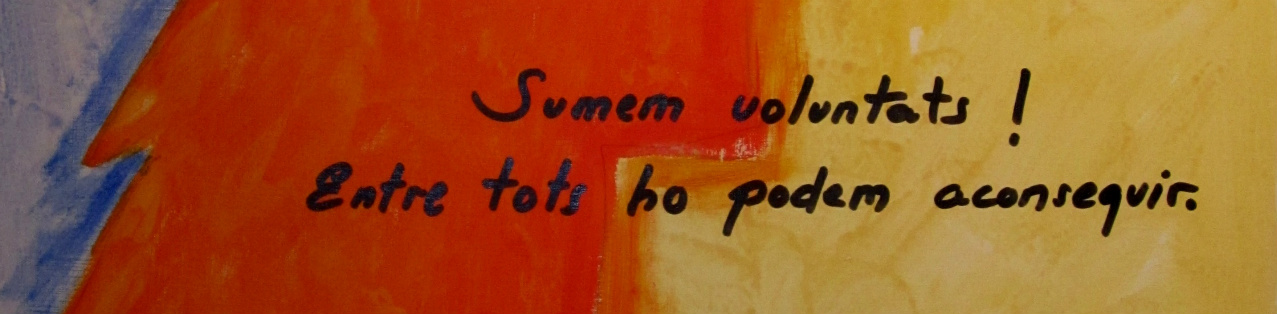 Sumem voluntats !
Entre tots ho podem aconseguir.